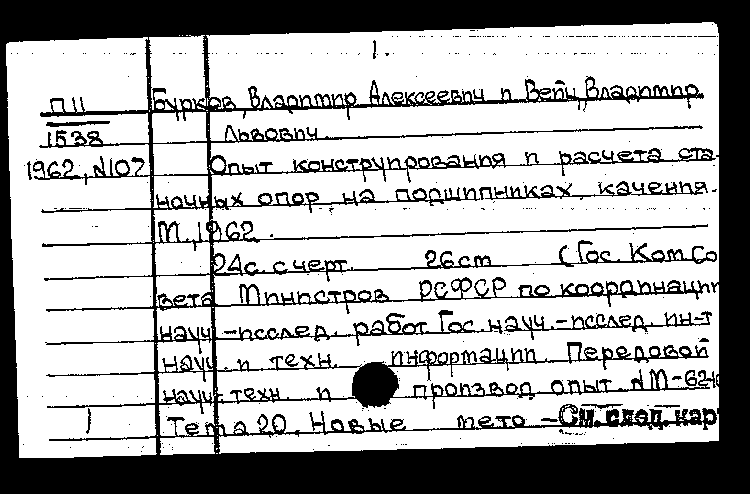 1.
П 11 Бурков, Владимир Алексеевич и Вейц, Владимир
1538 Львович.
1962, №107 Опыт конструирования и расчета ста-
ночных опор на подшипниках качения.
М., 1962.
24с. с черт. 26см (Гос. Ком. Со
вета Министров РСФСР по координации
науч.-исслед. работ Гос. науч.-исслед. ин-т
науч. и техн. информации. Передовой
науч.-техн. и производ. опыт. №М-62-
1 Тема 20. Новые мето - См. след. кар